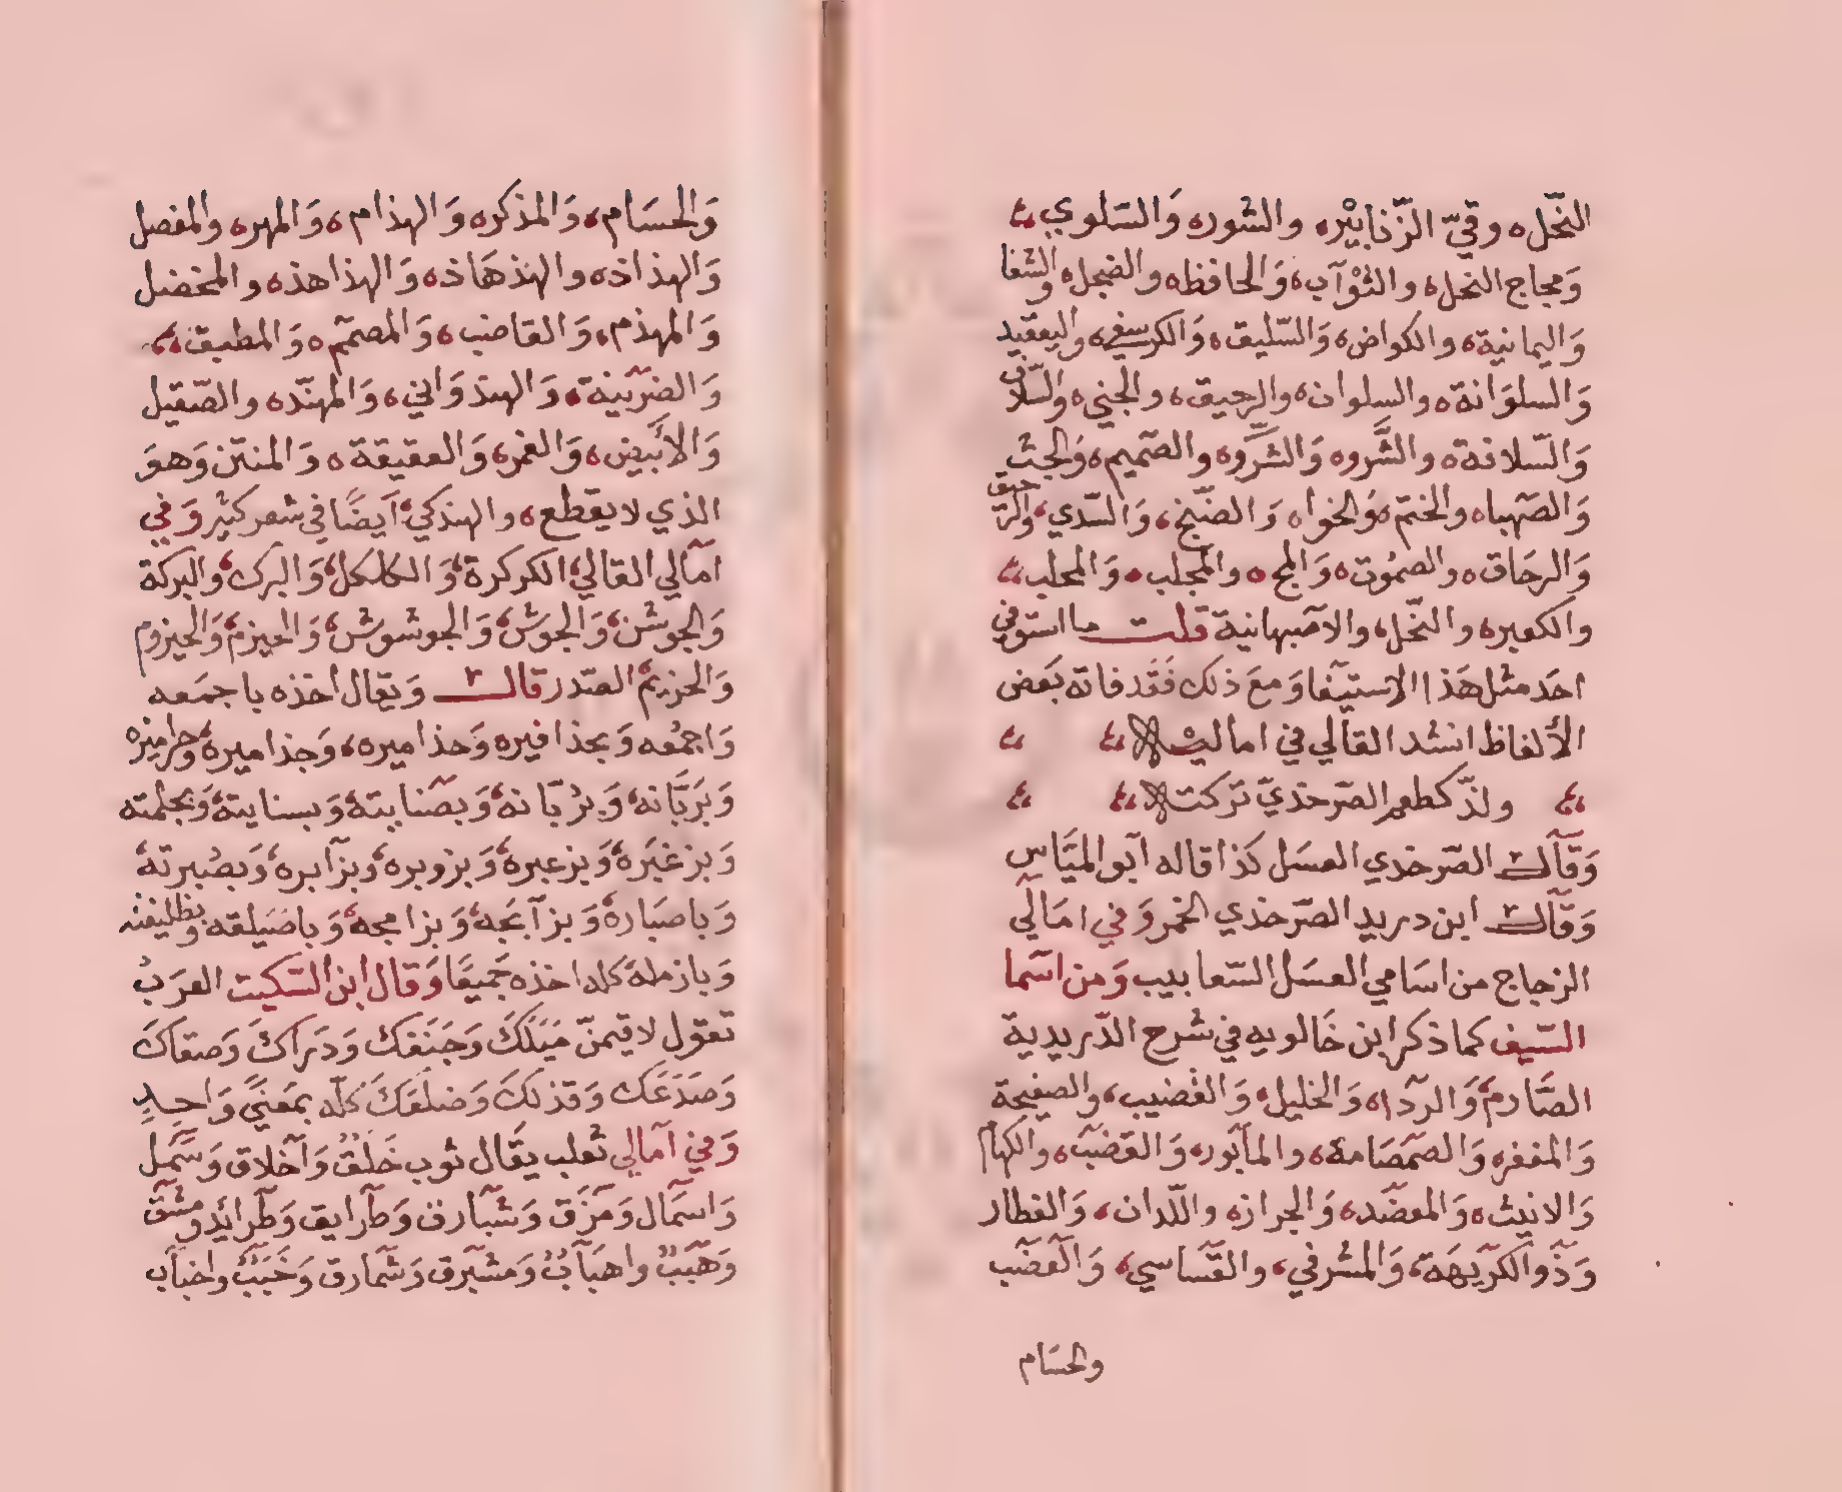 النّحل، وقيّ الزّنابيْر، والشور، وَالسّلوي،
وَمجاج النحل، والثوْآب، وَالحافظ، والضحل، والشفا
وَاليمانية، والكواض، وَالسّليق، وَالكرسفي، واليعقيد
وَالسلوَانة، والسلوان، والرحيق، والجني، والسّلاف
وَالسّلافة، والشَّرو، وَالشَرو، والصّميم، وَالجث
وَالصّهباء، والختم، وَالخوا، وَالضّبح، وَالسّدي، والرّحيق
وَالرحَاق، والصمُوت، وَالمج، والمجلب، وَالمحلب،
والكعبر، والنّحل، والاصبهانية قلت ما استوفي
احَد مثل هَذا الاستيفا وَمعَ ذلك فَقَد فاته بَعض
الألفاظ انشد القالي في اماليه
ولذّ كطعم الصّرخديّ تركت
وَقَال الصّرخدي العسَل كذا قاله ابو الميَّاس
وَقَال ابن دريد الصّرخدي الخمر وَفي امَالي
الزجاج من اسَامي العسَل السّعابيب وَمن اسما
السّيف كما ذكر ابن خَالويه في شرح الدّريدية
الصَّارم، وَالردا، وَالخليل، وَالقضيب، والصفيحة
وَالمغفر، وَالصّمصَامة، والمأثور، وَالقضب، والكهام
وَالانيث، وَالمعضَد، وَالجراز، واللّدان، وَالفطار
وَذُو الكَريهَة، وَالمشرفي، والقَسَاسي، وَالعَضب
والحسَام
وَالحسَام، وَالمذكر، وَالهذام، وَالمهر، والمفصل
وَالهذاذ، والهذهَاذ، وَالهذاهذ، والمخضل
وَالمهذم، وَالقاضب، وَالمصمّم، وَالمطبق،
وَالضرّبية، وَالهندوَاني، وَالمهنّد، والصّقيل
وَالأبَيض، وَالغمر، وَالعقيقة، وَالمنتن وَهوَ
الذي لا يقطع، والهندكي، أيضًا في شعر كثير وَفي
امآلي القالي، الكركرة، وَالكلكل، وَالبرك، والبركة
وَالجوشن، وَالجوش، وَالجوشوش، وَالحيزم، وَالحيزوم
وَالحزيم، الصّدر قال وَيقال اخذه باجمَعه
وَاجمُعه وَبحذافيره وَحذاميره، وَجذاميره، وجراميزه
وَبَربَّانه، وَبرُبّانه، وَبصّنايته، وَبسنايته، وَبجلمته
وَبزغبَره، وَبزعبره، وَبزوبره، وبزآبره، وَبصُبرته،
وَباصبَاره، وَبزآبَجه، وَبزامجه، وَباصَيلته، وبظليفته
وَبازمله، كله اخذه جَميعًا وَقال ابن السّكيت العرَبُ
تقوّل لاقيمنّ مَيَلَكَ وَجَنَفَك وَدَرَاكَ وَصغاكَ
وَصَدَعَك وَقذلكَ وَضلعَكَ كلّه بمَعنًي وَاحِدٍ
وَفي آمالي ثعلب يقَال ثوب خَلَقٌ وَآخلاق وَسَمَل
وَاسمَال وَمَزق وَشبَارق وَطرَايق وَطرَائد ومشق
وَهَبَبٌ واهبَابٌ وَمشبَرق وَشمارق وَخَبَبٌ واخبَاب